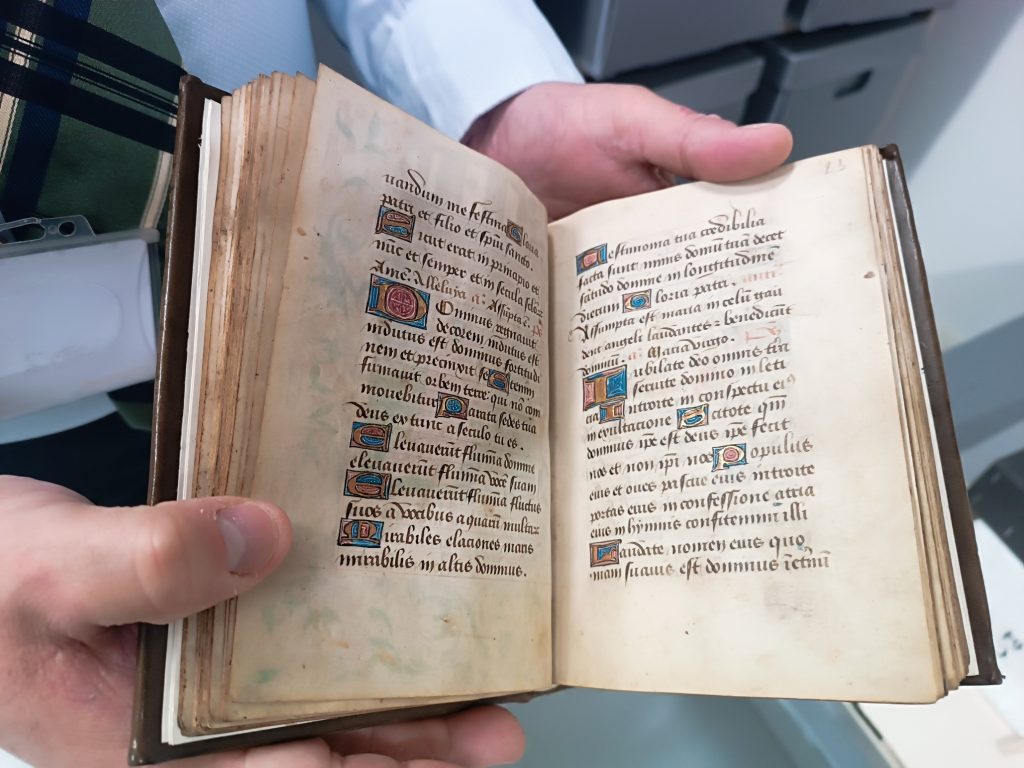 uandum me festina. Gloria
patri et filio et spiui sancto.
Sicut erat in principio et
nūc et semper et in secula seculoꝝ
Amē. Alleluya a. Assūpta ē. ps
Dominus regnauit
decorem indutus est
indutus est dominus fortitudi
nem et precinxit se Etenim
firmauit orbem terre qui nō com
mouebitur Parata sedes tua
deus ex tunc a seculo tu es.
Eleuauerūt flumīa domine
eleuauerūt flumīa voce suam
Eleuauerūt flumīa fluctus
suos a vocibus aquarū multaꝝ
Mirabiles elaciones maris
mirabilis in altis dominus.
23
Testimonia tua credibilia
facta sunt nimis domū tuā decet
sātitudo domine in longitudinē
dierum Gloria patri. anti
Assumpta est maria in celū gau
dent angeli laudantes ꝛ benedicūt
dominū. a. Maria virgo. ps
Iubilate deo omnis tr̄a
seruite domino in leti
cia Introite in conspectu eiꝰ
in exultacione Scitote qm̄
dominus ip̄e est deus ip̄e fecit
nos et non ip̄i nos Populus
eius et oues pascue eius introite
portas eius in confessione atria
eius in hymnis confitemini illi
Laudate nomen eius quo
niam suauis est dominus